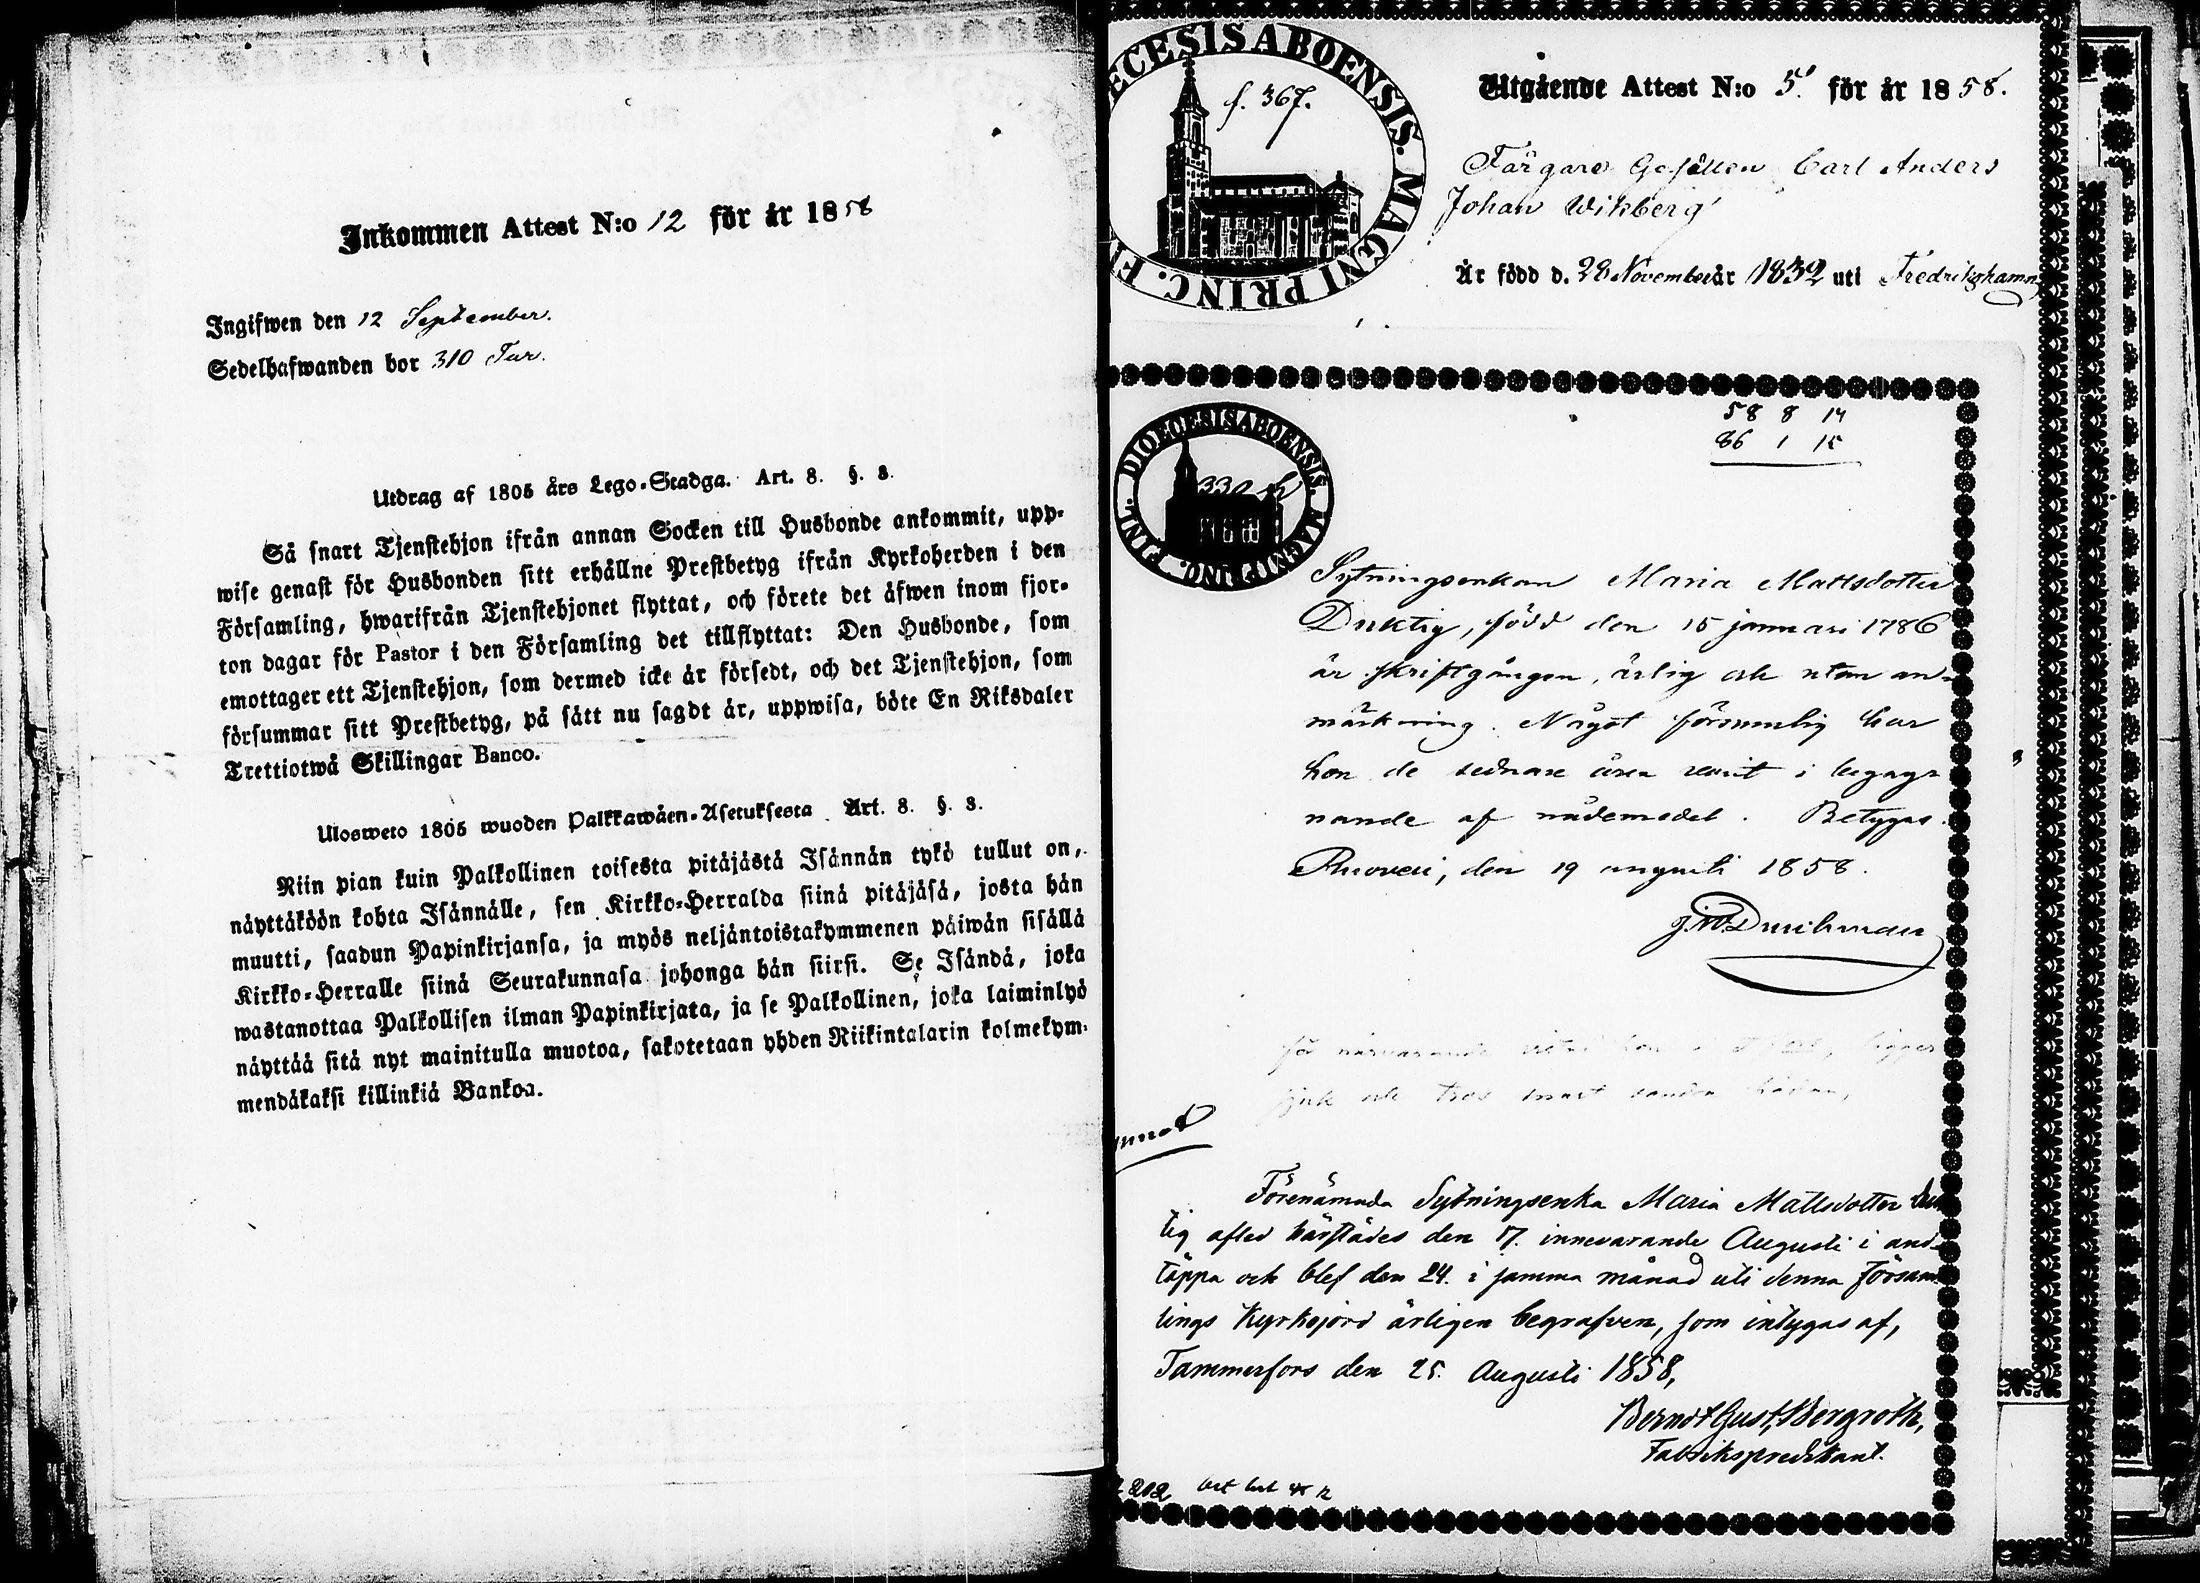 Inkommen Attest N:o 12 för år 1858
Ingifwen den 12 September.
Sedelhafwanden bor 310 Tur.
Utdrag af 1805 års Lego-Stadga. Art. 8. §. 3.
Så snart Tjenstehjon ifrån annan Socken till Husbonde ankommit, upp-
wise genast för Husbonden sitt erhållne Prestbetyg ifrån Kyrkoherden i den
Församling, hwarifrån Tjenstehjonet flyttat, och förete det äfwen inom fjor-
ton dagar för Pastor i den Församling det tillflyttat: Den Husbonde, som
emottager ett Tjenstehjon, som dermed icke är försedt, och det Tjenstehjon, som
försummar sitt Prestbetyg, på sätt nu sagdt är, uppwisa, böte En Riksdaler
Trettiotwå Skillingar Banco.
Ulosweto 1805 wuoden Palkkawäen-Asetuksesta Art. 8. §. 3.
Niin pian kuin Palkollinen toisesta pitäjästä Isännän tykö tullut on,
näyttäköön kohta Isännälle, sen Kirkko-Herralda siinä pitäjäsä, josta hän
muutti, saadun Papinkirjansa, ja myös neljäntoistakymmenen päiwän sisällä
Kirkko-Herralle siinä Seurakunnasa johonga hän siirsi. Se Isändä, joka
wastanottaa Palkollisen ilman Papinkirjata, ja se Palkollinen, joka laiminlyö
näyttää sitä nyt mainitulla muotoa, sakotetaan yhden Riikintalarin kolmekym-
mendäkaksi killinkiä Bankoa.
ECESIS ABOENSIS. MAGNI PRINC. FI
f. 367.
Utgående Attest N:o 5. för år 1858.
Färgare Gesällen Carl Anders
Johan Wikberg
Är född d. 28 November år 1832 uti Fredrikshamn
58 8 14
86 1 15
DIOECESIS ABOENSIS. MAGNI PRINC. FINL.
330
Sytningsenkan Maria Mattsdotter
Duktig, född den 15 januari 1786
är skriftgången, ärlig och utan an-
märkning. Något försumlig har
hon de sednare åren varit i begag-
nande af nådemedel. Betygas.
Ruovesi, den 19 augusti 1858.
för närvarande vistas hon i ligger
sjuk och tros snart vandra hädan,
Förenämnda Sytningsenka Maria Mattsdotter Duk
tig afled härstädes den 17. innevarande Augusti i and-
täppa och blef den 24. i samma månad uti denna Försam
lings Kyrkojord ärligen begrafven, som intygas af,
Tammerfors den 25. Augusti 1858,
Berndt Gust. Bergroth,
Fabrikspredikant.
202